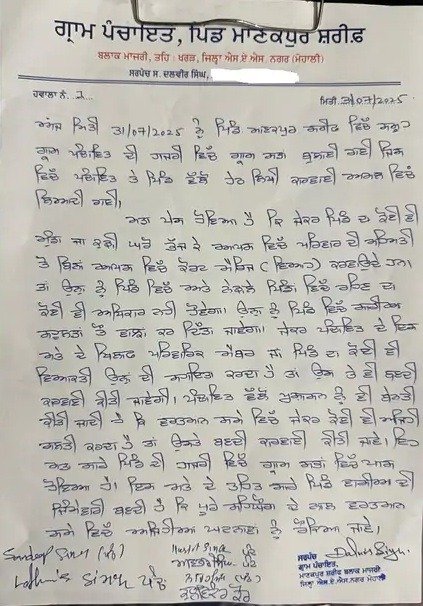 ਗ੍ਰਾਮ ਪੰਚਾਇਤ, ਪਿੰਡ ਮਾਣਕਪੁਰ ਸ਼ਰੀਫ਼
ਬਲਾਕ ਮਾਜਰੀ, ਤਹਿ: ਖਰੜ, ਜ਼ਿਲ੍ਹਾ ਐਸ.ਏ.ਐਸ. ਨਗਰ (ਮੋਹਾਲੀ)
ਸਰਪੰਚ ਸ. ਦਲਵੀਰ ਸਿੰਘ,
ਹਵਾਲਾ ਨੰ. ਮਿਤੀ 31/07/2025
ਮਿਤੀ 31/07/2025 ਨੂੰ ਪਿੰਡ ਮਾਣਕਪੁਰ ਸ਼ਰੀਫ ਵਿੱਚ
ਗ੍ਰਾਮ ਪੰਚਾਇਤ ਦੀ ਹਾਜਰੀ ਵਿੱਚ ਗ੍ਰਾਮ ਸਭਾ ਬੁਲਾਈ ਗਈ ਜਿਸ
ਵਿੱਚ ਪੰਚਾਇਤ ਤੇ ਪਿੰਡ ਵੱਲੋਂ ਹੇਠ ਲਿਖੀ ਕਰਵਾਈ ਅਮਲ ਵਿੱਚ
ਲਿਆਂਦੀ ਗਈ।
ਮਤਾ ਪੇਸ਼ ਹੋਇਆ ਹੈ ਕਿ ਜੇਕਰ ਪਿੰਡ ਦਾ ਕੋਈ ਵੀ
ਮੁੰਡਾ ਜਾ ਕੁੜੀ ਘਰੋਂ ਭੱਜ ਕੇ ਆਪਸ ਵਿੱਚ ਪਰਿਵਾਰ ਦੀ ਸਹਿਮਤੀ
ਤੋਂ ਬਿਨਾਂ ਆਪਸ ਵਿੱਚ ਕੋਰਟ ਮੈਰਿਜ (ਵਿਆਹ) ਕਰਵਾਉਂਦੇ ਹਨ।
ਤਾਂ ਉਨ੍ਹਾਂ ਨੂੰ ਪਿੰਡ ਵਿੱਚ ਅਤੇ ਨੇੜਲੇ ਪਿੰਡਾਂ ਵਿੱਚ ਰਹਿਣ ਦਾ
ਕੋਈ ਵੀ ਅਧਿਕਾਰ ਨਹੀਂ ਹੋਵੇਗਾ। ਉਨ੍ਹਾਂ ਨੂੰ ਪਿੰਡ ਵਿੱਚ
ਕਰ ਦਿੱਤਾ ਜਾਵੇਗਾ। ਜੇਕਰ ਪੰਚਾਇਤ ਦੇ ਇਸ
ਮਤੇ ਦੇ ਖਿਲਾਫ ਪਰਿਵਾਰਿਕ ਮੈਂਬਰ ਜਾਂ ਪਿੰਡ ਦਾ ਕੋਈ ਵੀ
ਵਿਅਕਤੀ ਉਨ੍ਹਾਂ ਦੀ ਸਹਾਇਤਾ ਕਰਦਾ ਹੈ ਤਾਂ ਉਸ ਤੇ ਵੀ ਬਣਦੀ
ਕਰਵਾਈ ਕੀਤੀ ਜਾਵੇਗੀ। ਪੰਚਾਇਤ ਵੱਲੋਂ ਪ੍ਰਸ਼ਾਸਨ ਨੂੰ ਵੀ ਬੇਨਤੀ
ਕੀਤੀ ਜਾਂਦੀ ਹੈ ਕਿ ਵਰਤਮਾਨ ਸਮੇਂ ਵਿੱਚ ਜੇਕਰ ਕੋਈ ਵੀ ਅਜਿਹੀ
ਗਲਤੀ ਕਰਦਾ ਹੈ ਤਾਂ ਉਸਤੇ ਬਣਦੀ ਕਰਵਾਈ ਕੀਤੀ ਜਾਵੇ। ਇਹ
ਮਤਾ ਸਾਰੇ ਪਿੰਡ ਦੀ ਹਾਜਰੀ ਵਿੱਚ ਗ੍ਰਾਮ ਸਭਾ ਵਿੱਚ ਪਾਸ
ਹੋਇਆ ਹੈ। ਇਸ ਮਤੇ ਦੇ ਤਹਿਤ ਸਾਰੇ ਪਿੰਡ ਵਾਸੀਆਂ ਦੀ
ਜਿੰਮੇਵਾਰੀ ਬਣਦੀ ਹੈ ਕਿ ਪੂਰੇ ਸਹਿਯੋਗ ਦੇ ਨਾਲ ਵਰਤਮਾਨ
ਸਮੇਂ ਵਿੱਚ ਅਜਿਹੀਆਂ ਘਟਨਾਵਾਂ ਨੂੰ ਰੋਕਿਆ ਜਾਵੇ।
Sandeep Singh (ਪੰਚ)
Singh ਪੰਚ
ਕੌਰ
ਸਰਪੰਚ Dalvir Singh
ਗ੍ਰਾਮ ਪੰਚਾਇਤ,
ਮਾਣਕਪੁਰ ਸ਼ਰੀਫ਼ ਬਲਾਕ ਮਾਜਰੀ
ਜ਼ਿਲ੍ਹਾ ਐਸ.ਏ.ਐਸ ਨਗਰ ਮੋਹਾਲੀ